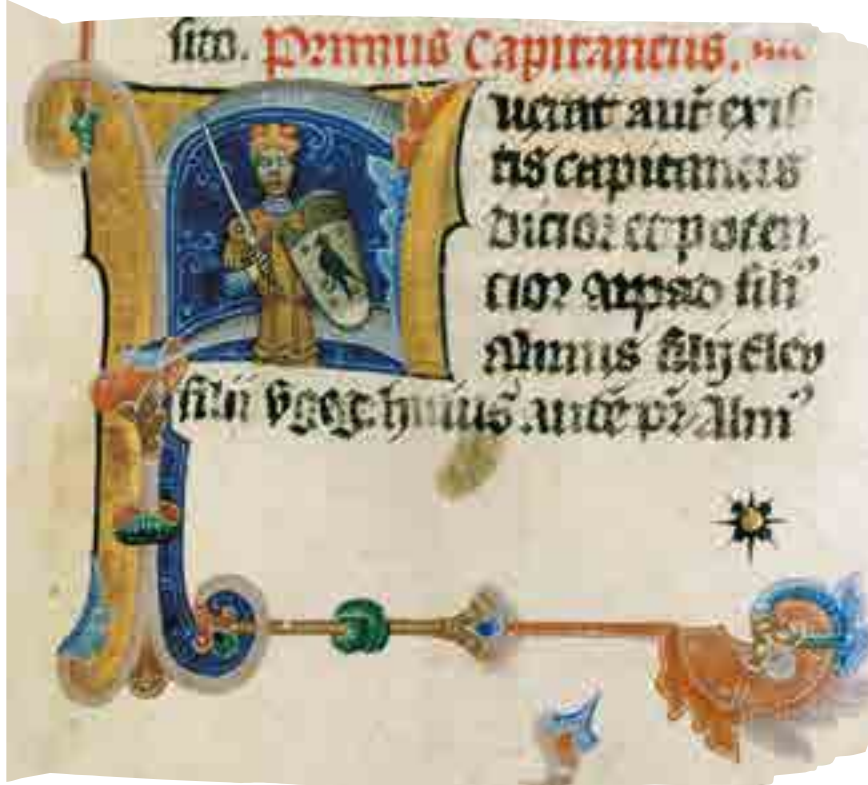 Primus Capitaneus.
Fuerat aut̄ exis
tis capitaneis
dicior et poten
cior arpad filiꝰ
Almus filij Eleu
filii vgeg. huius autē pr̄ Almꝰ